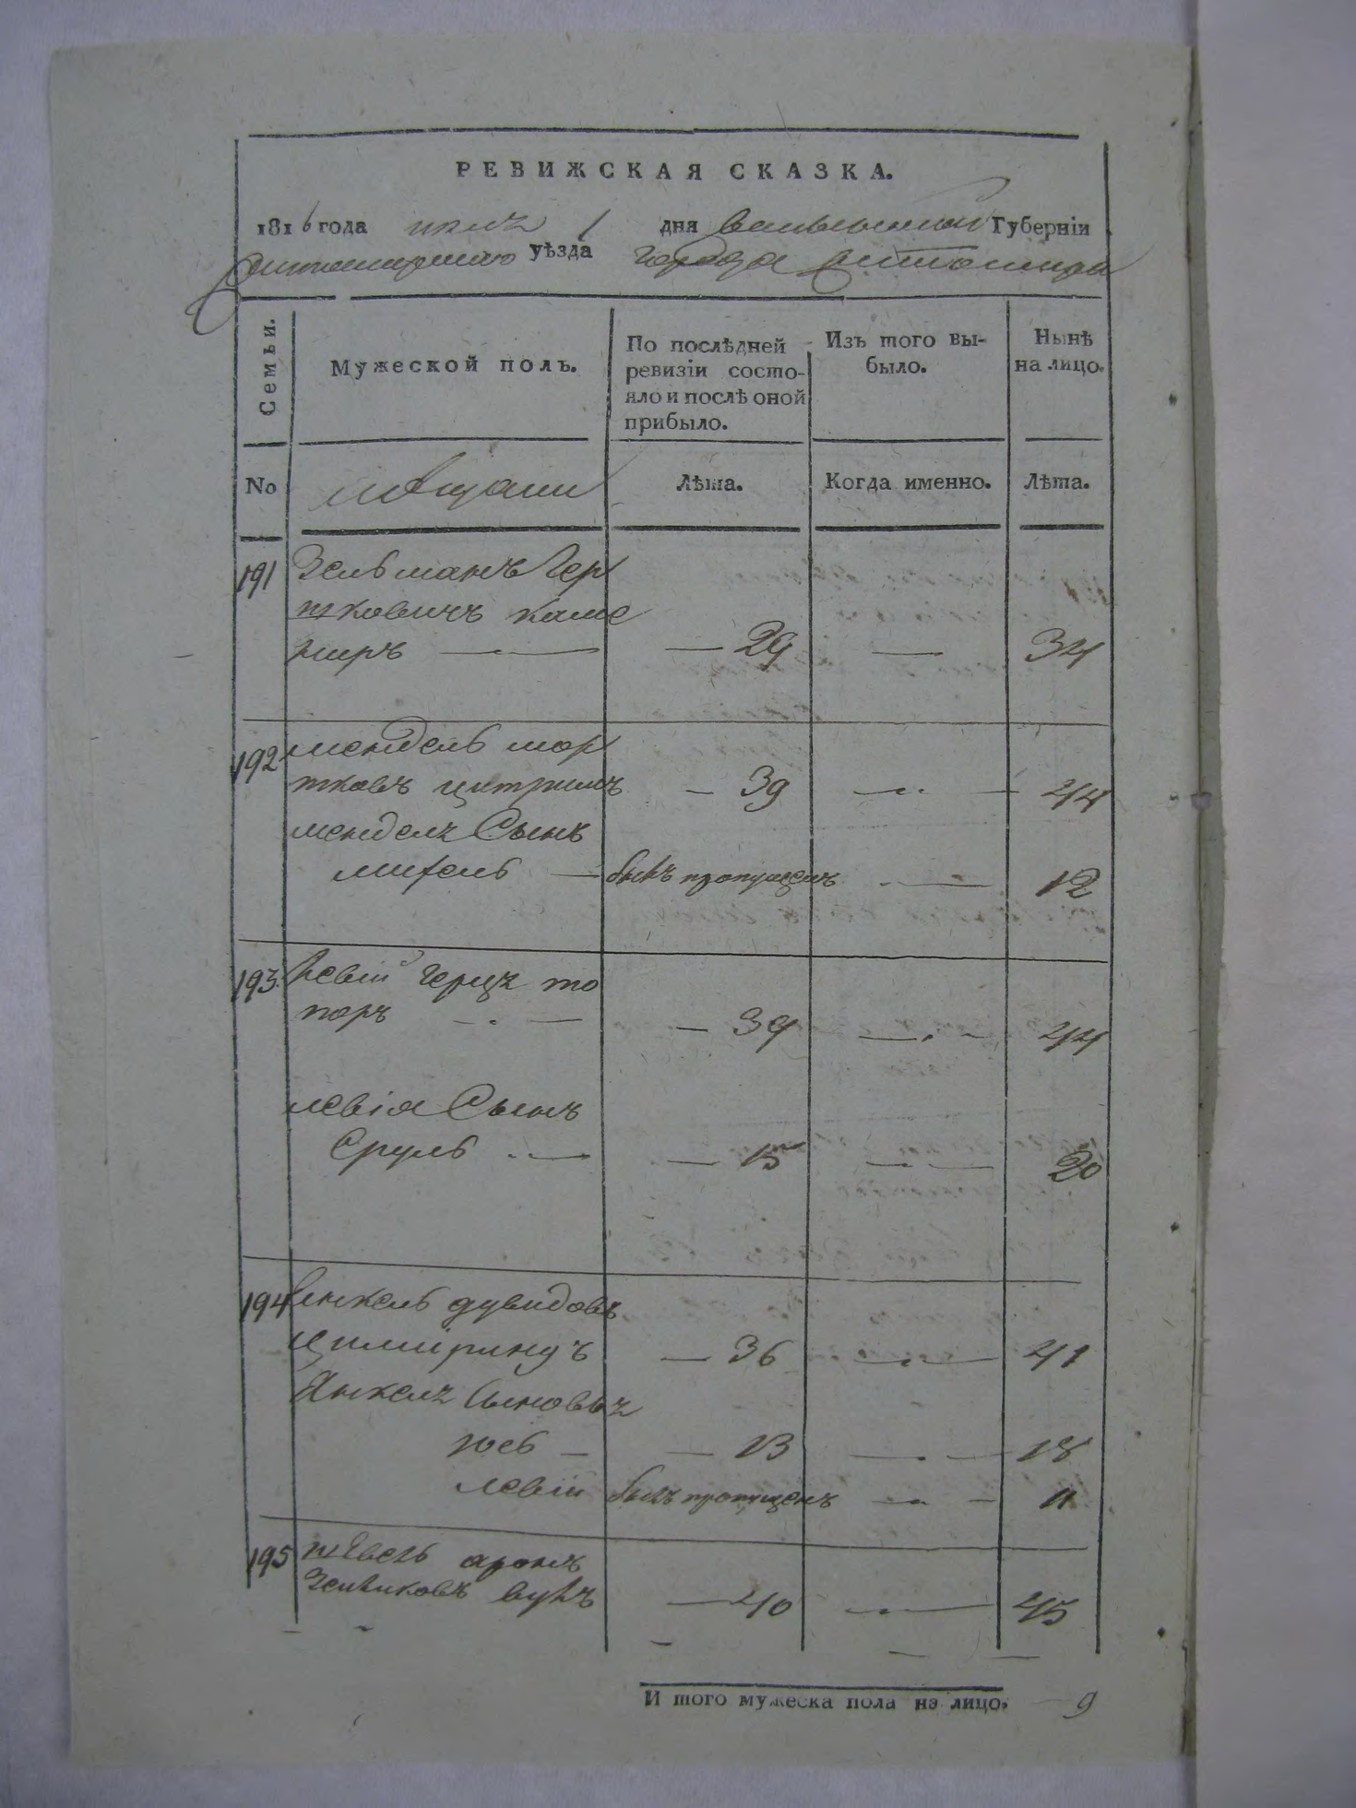 РЕВИЖСКАЯ СКАЗКА.
1816 года июля 1 дня Волынской Губерніи
Житомирскаго уѣзда города Житомира
Семьи.
Мужеской полъ.
По послѣдней ревизіи состояло и послѣ оной прибыло.
Изъ того выбыло.
Нынѣ на лицо.
No
Мещане
Лѣта.
Когда именно.
Лѣта.
191 Зельманъ Гер
шковичъ
— 29 — 34
192 Мендель Мор
тковъ
— 39 — 44
Менделя Сынъ
— былъ пропущенъ — 12
193 Левій Герца То
поръ — 39 — 44
Левія Сынъ
Сруль — 15 — 20
194 Янкель Дувидовъ
— 36 — 41
Янкеля Сыновья
— 13 — 18
Левій былъ пропущенъ — 11
195 Аронъ
— 40 — 45
И того мужеска пола на лицо. 9